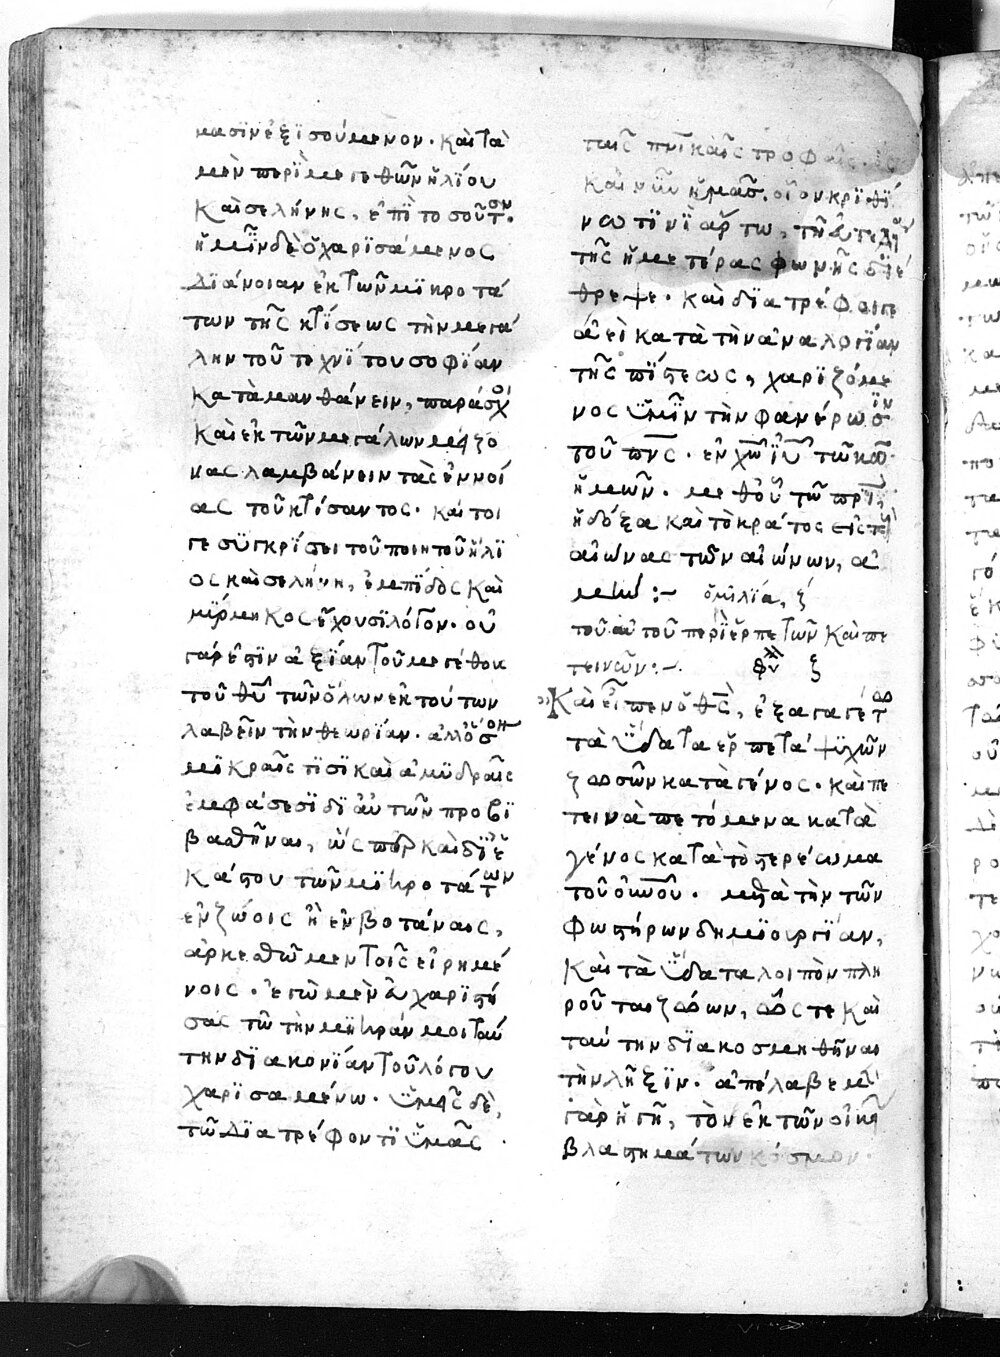 μασϊν ἐξϊσούμενον· καὶ τὰ
μὲν περὶ μεγεθῶν ἡλίου
καὶ σελήνης, ἐπὶ τοσοῦτον·
ἡμῖν δὲ ὁ χαρϊσάμενος
διάνοιαν ἐκ τῶν μϊκροτά
των τῆς κτίσεως τὴν μεγά
λην τοῦ τεχνίτου σοφίαν
καταμανθάνειν, παράσχοι
καὶ ἐκ τῶν μεγάλων μείζο
νας λαμβάνειν τὰς ἐννοί
ας τοῦ κτίσαντος· καίτοι
γε συγκρίσει τοῦ ποιητοῦ ἥλϊ
ος καὶ σελήνη, ἐμπίδος καὶ
μϊρμηκος ἔχουσϊ λόγον· οὐ
γάρ ἐστϊν ἀξίαν τοῦ μεγέθους
τοῦ θυ τῶν ὅλων ἐκ τούτων
λαβεῖν τὴν θεωρίαν· ἀλλ' ὅσον
μϊκραῖς τισϊ καὶ ἀμυδραῖς
ἐμφάσεσϊ δϊ αὐτῶν προβϊ
βασθῆναι, ὥσπερ καὶ δϊ ἑ
κάστου τῶν μϊκροτάτων
ἐν ζώοις ἢ ἐν βοτάναις,
ἀρκεσθῶμεν τοῖς εἰρημέ
νοις· ἐγὼ μὲν εὐχαρϊστή
σας τῶ τὴν μϊκράν μοι ταύ
την δϊακονίαν τοῦ λόγου
χαρϊσαμένω· ὑμεῖς δὲ,
τῶ διατρέφοντϊ ὑμᾶς
ταῖς πνικαῖς τροφαῖς· ὃς
καὶ νῦν ἡμᾶς, οἷον κριθί
νω τϊνὶ ἄρτω, τῆ εὐτελεία
τῆς ἡμετέρας φωνῆς δϊέ
θρεψε· καὶ δϊατρέφοιτε
ἀεὶ κατὰ τὴν ἀναλογίαν
τῆς πίστεως, χαρϊζόμε
νος ὑμῖν τὴν φανέρωσϊν
τοῦ πνς· ἐν χω ιυ τῶ κω
ἡμῶν· μεθ' οὗ τῶ πρϊ,
ἡ δόξα καὶ τὸ κράτος εἰς τοὺς
αἰώνας τῶν αἰώνων, ἀ
μήν :~ ὁμιλία, ζ
τοῦ αὐτοῦ περὶ ἑρπετῶν καὶ πε
τεινῶν :~.
Καὶ εἶπεν ὁ θς, ἐξαγαγέτω
τὰ ὕδατα ἑρπετὰ ψυχῶν
ζωσῶν κατὰ γένος· καὶ πε
τεινὰ πετόμενα κατὰ
γένος κατὰ τὸ στερέωμα
τοῦ οὐνοῦ· μετὰ τὴν τῶν
φωστήρων δημϊουργίαν,
καὶ τὰ ὕδατα λοιπὸν πλη
ροῦται ζώων, ὥστε καὶ
ταύτην δϊακοσμηθῆναι
τὴν λῆξϊν· ἀπέλαβε μὲν
γὰρ ἡ γῆ, τὸν ἐκ τῶν οἰκείων
βλαστημάτων κόσμον·